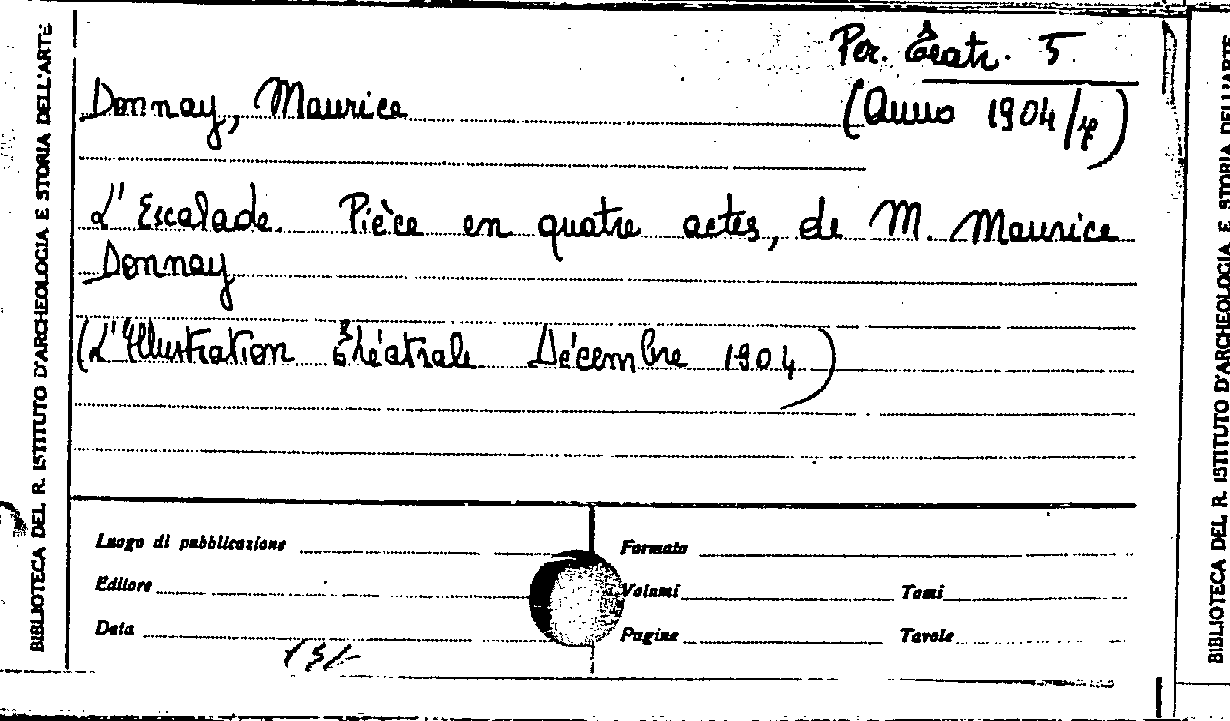 Per. Teatr. 5
Donnay, Maurice
(Anno 1904/
L'Escalade. Pièce en quatre actes, de M. Maurice
Donnay
(L'Illustration Théâtrale Décembre 1904)
Luogo di pubblicazione
Formato
Editore
Volumi
Tomi
Data
Pagine
Tavole
BIBLIOTECA DEL R. ISTITUTO D'ARCHEOLOGIA E STORIA DELL'ARTE
BIBLIOTECA DEL R. ISTITUTO D'ARCHEOLOGIA E STORIA DELL'ARTE